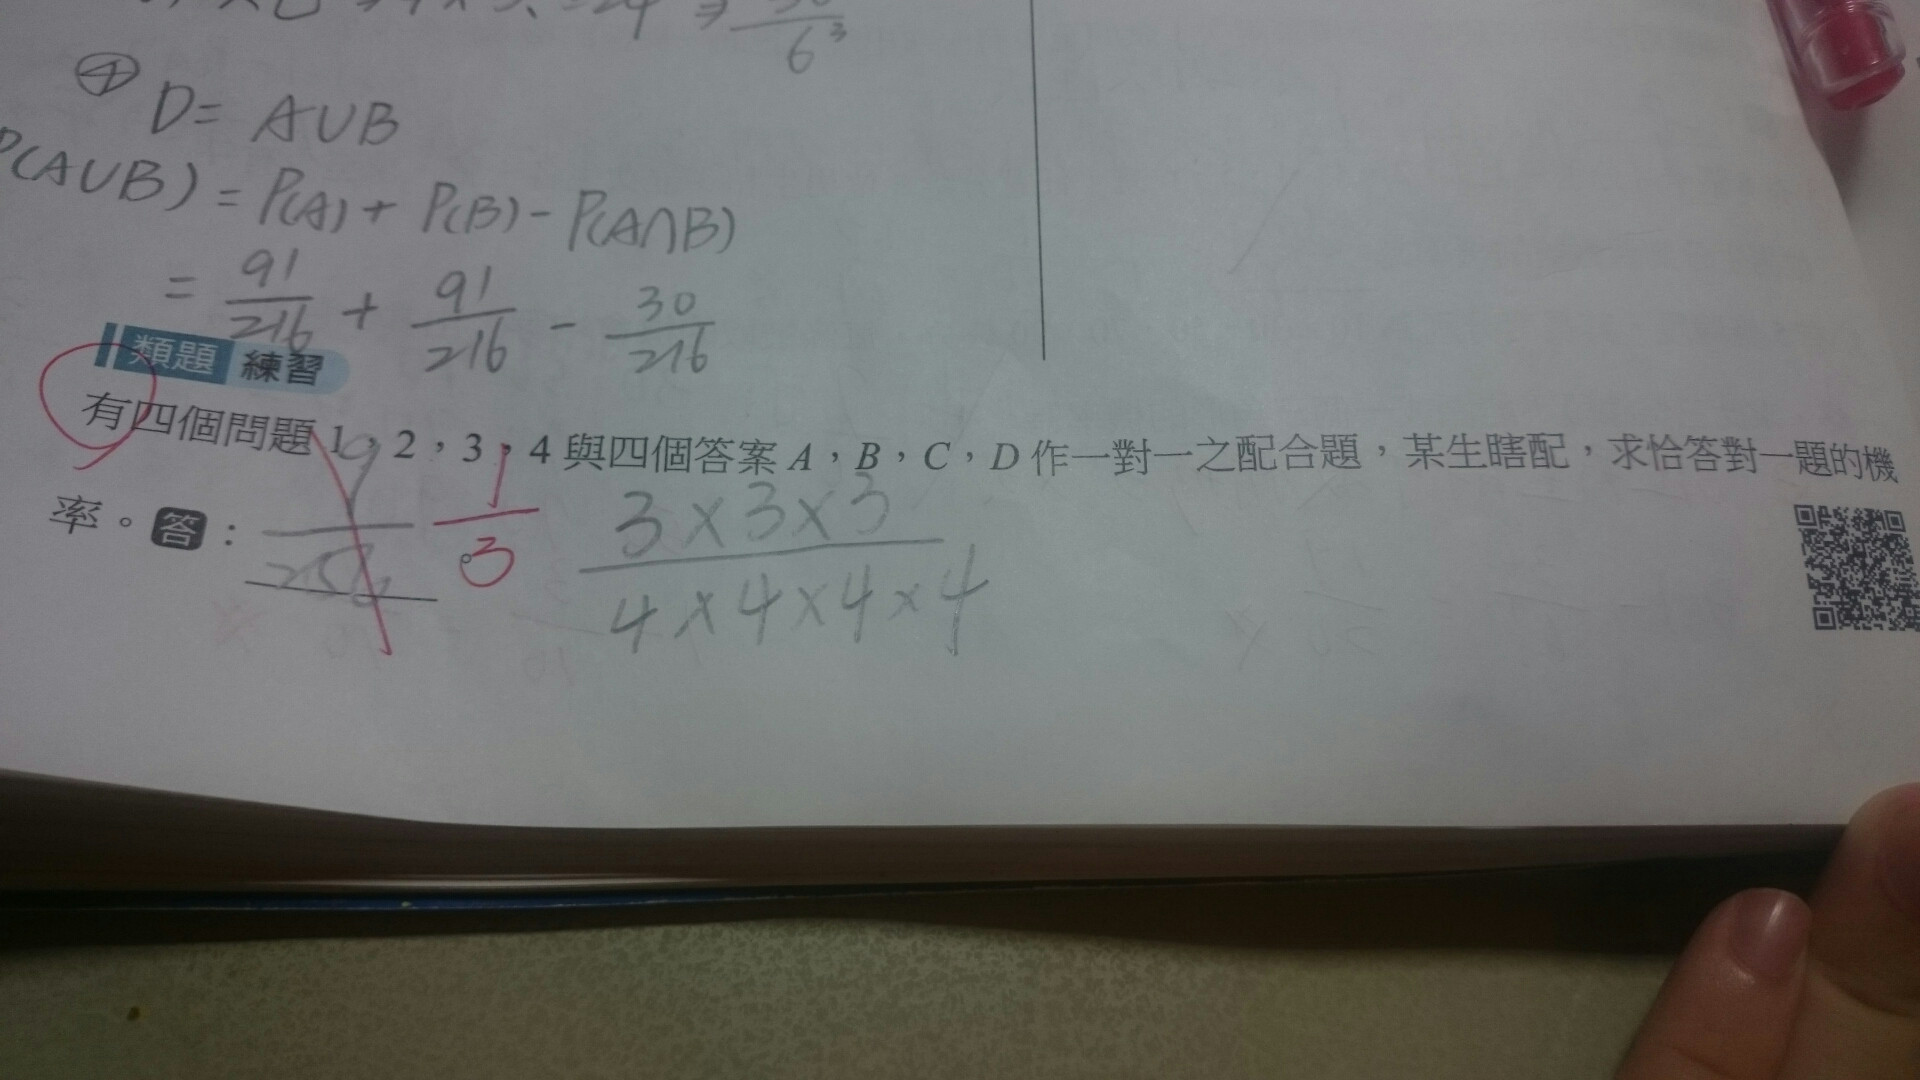 6³
④ D= A∪B
P(A∪B) = P(A) + P(B) - P(A∩B)
= 91/216 + 91/216 - 30/216
類題 練習
有四個問題 1,2,3,4 與四個答案 A,B,C,D 作一對一之配合題,某生瞎配,求恰答對一題的機
率。答: 9/256 1/3 3×3×3/4×4×4×4